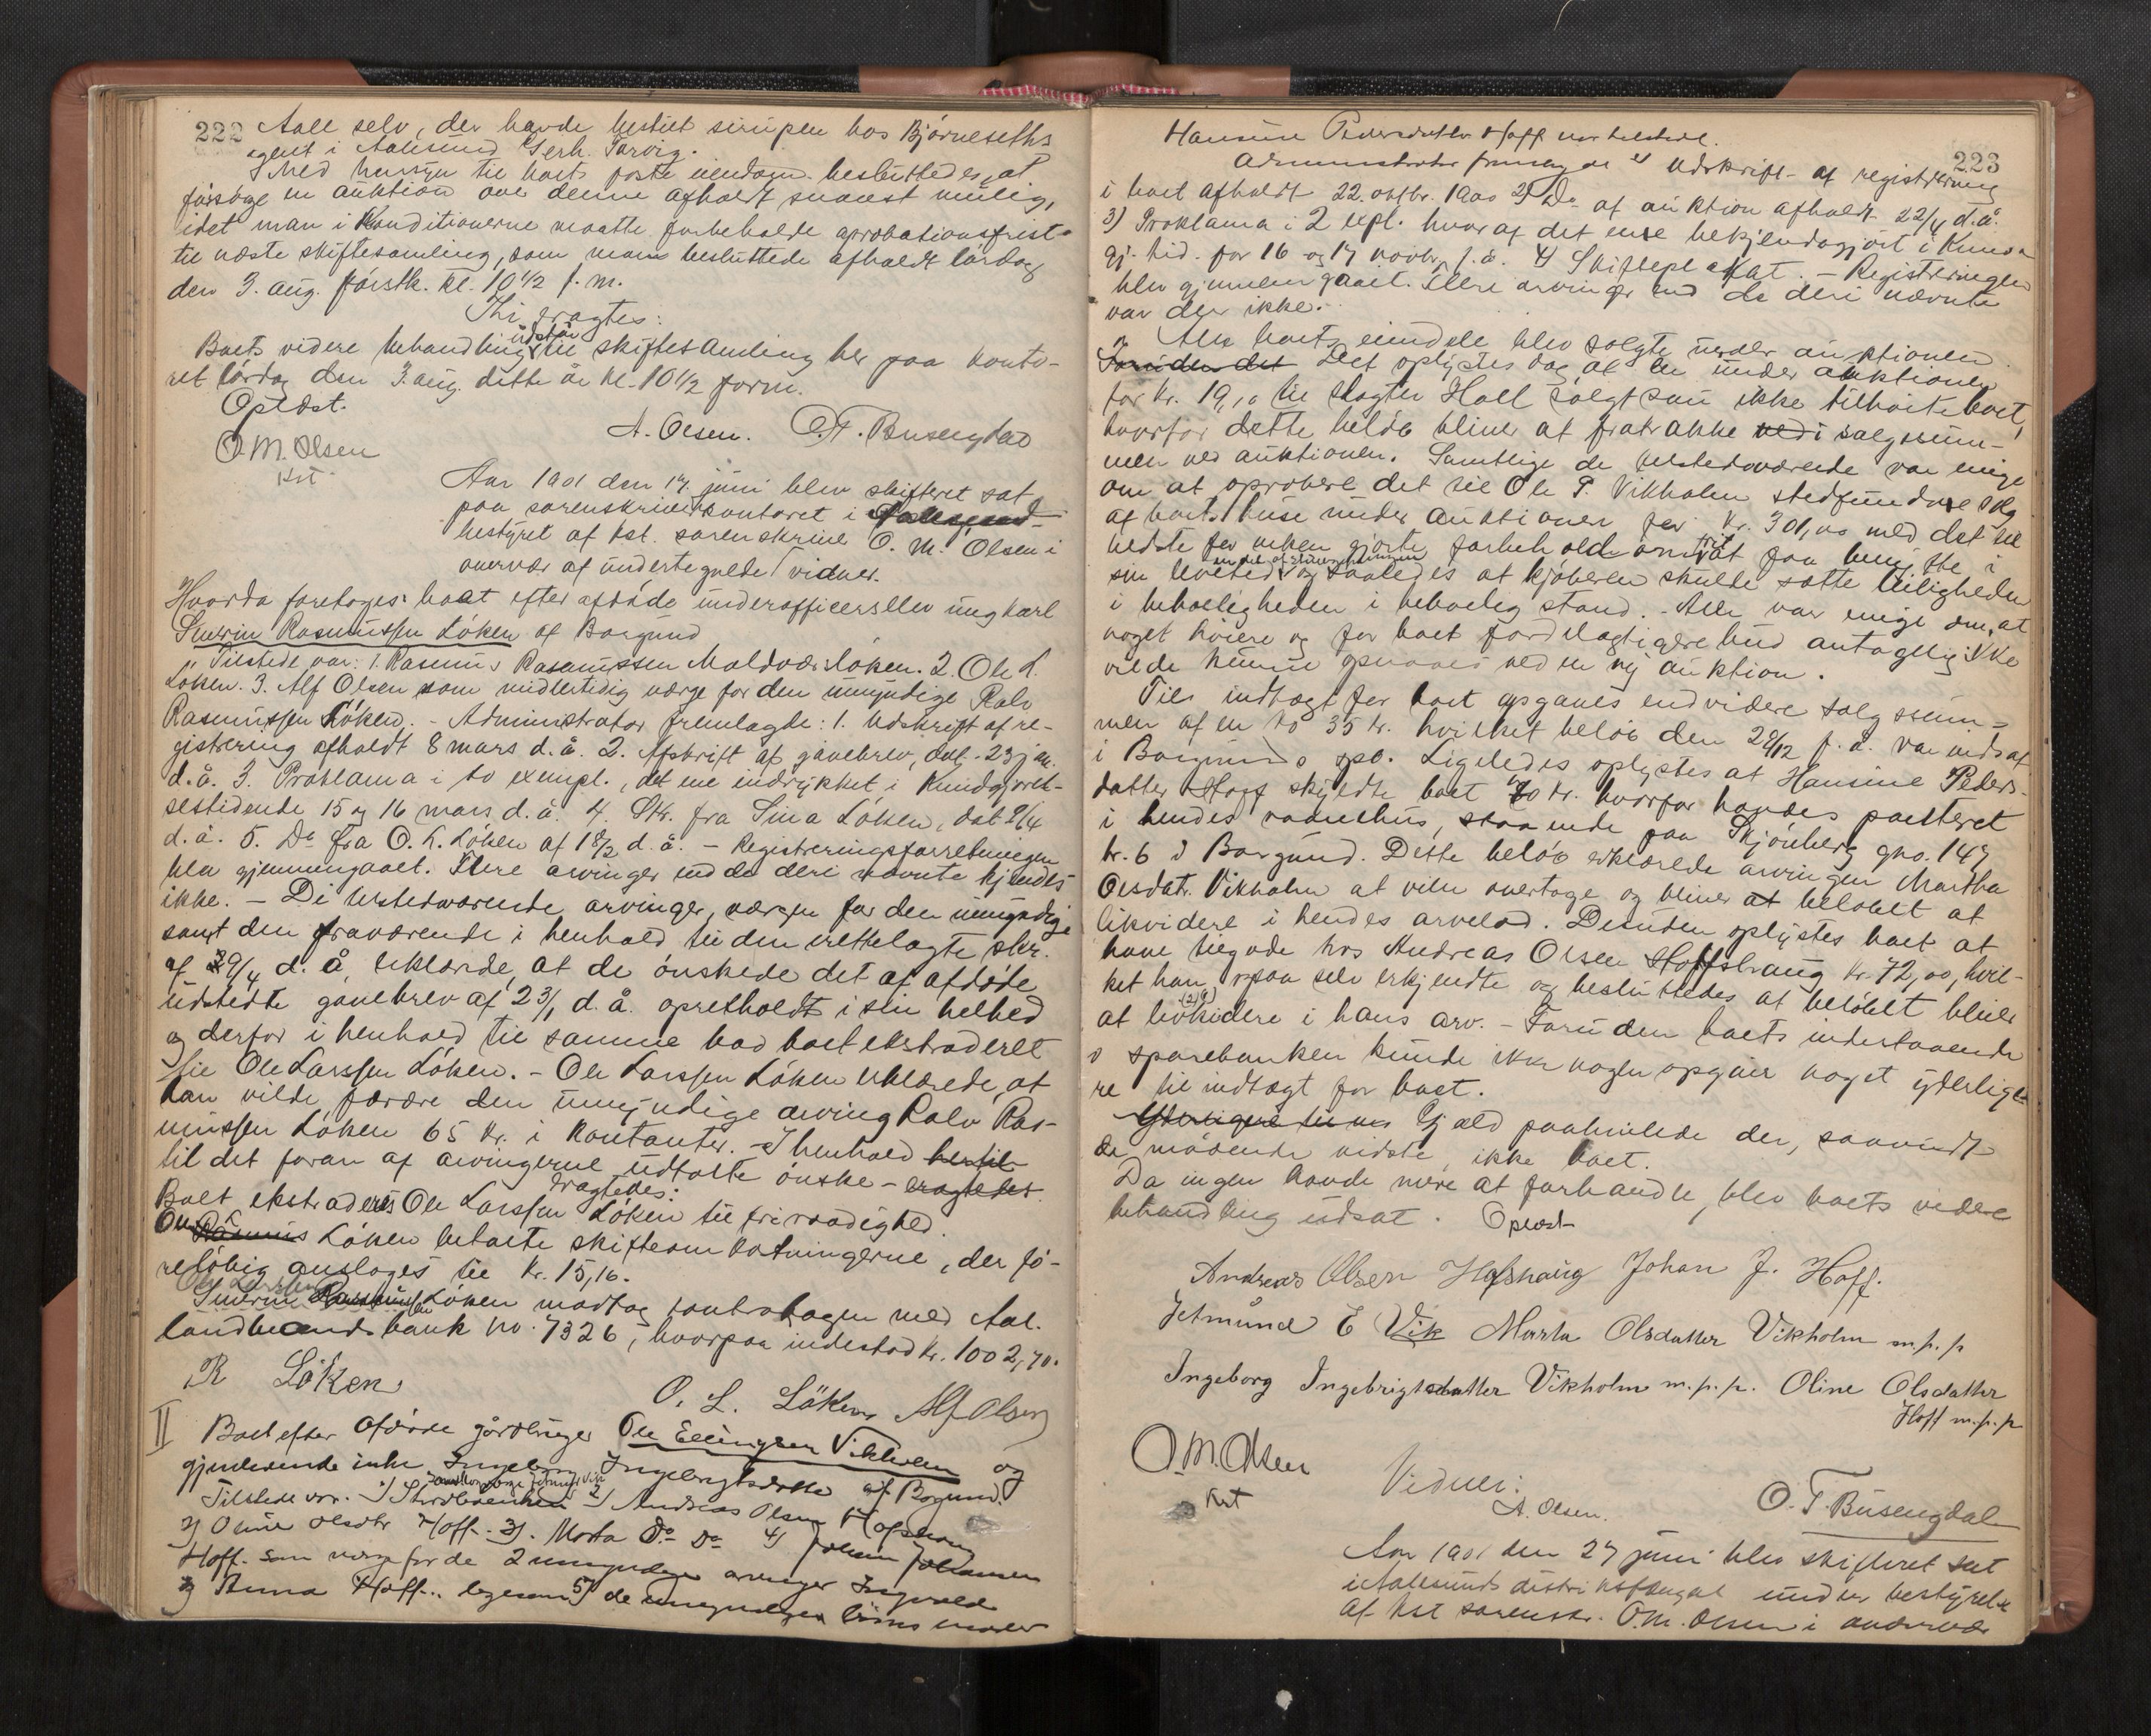 222 Aall selv, der havde bestilt sirupen hos Bjørneseths
agent i Aalesund Gerh. Torvig.
Med hensyn til boets faste eiendom besluttedes, at
forsøge en auktion over denne afholdt snarest mulig,
idet man i Konditionerne maatte forbeholde aprobationsfrist
til næste skiftesamling, som man besluttede afholdt lørdag
den 3. aug. førstk. kl. 10½ f.m.
Thi eragtes:
Boets videre behandling udstår til skiftesamling her paa konto-
ret lørdag den 3. aug. dette år kl. 10½ form.
Oplæst.
O. M. Olsen A. Olsen. O. T. Busengdal
kst.
Aar 1901 den 17. juni blev skifteret sat
paa sorenskriverkontoret i Aalesund
bestyret af kst. sorenskriver O. M. Olsen i
overvær af undertegnede vidner.
Hvorda foretoges: boet efter afdøde underofficerselev ungkarl
Severin Rasmussen Løken af Borgund
Tilstede var: 1. Rasmus Rasmussen Moldværsløken. 2. Ole L.
Løken. 3. Alf Olsen som midlertidig værge for den umyndige Ralv
Rasmussen Løken. - Administrator fremlagde: 1. Udskrift af re-
gistrering afholdt 8 mars d.å. 2. Afskrift af gavebrev, dat. 23 jan.
d.å. 3. Proklama i to exempl., det ene indrykket i Kundgjørel-
sestidende 15 og 16 mars d.å. 4. Skr. fra Sina Løken, dat 9/4
d.å. 5. Do fra O. L. Løken af 18/2 d.å. - Registreringsforretningen
blev gjennemgaaet. Flere arvinger end de deri nævnte kjendes
ikke. - De tilstedeværende arvinger, værgen for den umyndige
samt den fraværende i henhold til den rettelagte skr.
af 29/4 d.å. erklærede, at de ønskede det af afdøde
udstedte gavebrev af 23/1 d.å. opretholdt i sin helhed
og derfor i henhold til samme bad boet ekstraderet
til Ole Larssen Løken. - Ole Larssen Løken erklærede, at
han vilde forære den umyndige arving Ralv Ras-
mussen Løken 65 kr. i kontanter. - I henhold hertil
til det foran af arvingerne udtalte ønske - eragtedes
eragtedes:
Boet ekstraderes Ole Larssen Løken til fri raadighed.
Ole Rasmus Løken betalte skifteomkostningerne, der fo-
reløbig ansloges til kr. 15,16.
Ole Larssen
Severin Rasmussen Løken modtog kontrabogen med Aal.
landmandsbank no. 7326, hvorpaa indestod kr. 1002,70.
R Løken O. L. Løken Alf Olsen
II Boet efter Afdøde gårdbruger Ole Ellingsen Vikholm og
gjenlevende enke Ingeborg Ingebrigtsdatter af Borgund.
Tilstede var. 1) Stervboenken 2) Andreas Olsen Hofshaug
2) Oline Olsdtr Hoff. 3). Marta Do Do 4) Johan Johansen
Hoff. som værge for de 2 umyndige arvinger Ingvald
og Anna Hoff.. ligesom 5) de umyndiges moder
223
Hansine Pedersdatter Hoff var tilstede.
Administrator fremlagde 1) Udskrift af registrering
i boet afholdt 22. oktbr. 1900 2) Do af auktion afholdt 22/4 d.å.
3) Proklama i 2 expl. hvoraf det ene bekjendtgjort i Kund-
gj. tid. for 16 og 17 novbr. f.å. 4) Skifteplakat. - Registreringen
blev gjennemgaaet. Flere arvinger end de deri nævnte
var der ikke.
Alle boets eiendele blev solgte under auktionen
Foruden det Det oplystes dog, at en under auktionen
for kr. 19,10 til slagter Hall solgt sau ikke tilhørte boet,
hvorfor dette beløb bliver at fratrække ved i salgssum-
men ved auktionen. Samtlige de tilstedeværende var enige
om at aprobere det til Ole P. Vikholm stedfundne salg
af boets huse under auktionen for kr. 301,00 med det til
bedste for enken gjorte forbehold om frit at faa benytte i
sin levetid en del af stuebygningen og saaledes at kjøberen skulle sætte leiligheden
i beboeligheden i beboelig stand. - Alle var enige om, at
noget høiere og for boet fordelagtigere bud antagelig ikke
vilde kunne opnaaes ved en ny auktion.
Til indtægt for boet opgaves endvidere salgssum-
men af en ko 35 kr. hvilket beløb den 28/12 f.å. var indsat
i Borgunds spb. Ligeledes oplystes at Hansine Peders-
datter Hoff skyldte boet 70 kr. hvorfor havdes panteret
i hendes vaanehus, staaende paa Skjønberg gno. 147
br. 6 i Borgund. Dette beløb erklærede arvingen Martha
Olsdatr. Vikholm at ville overtage og bliver at beløbet at
likvidere i hendes arvelod. Desuden oplystes boet at
have tilgode hos Andreas Olsen Hoffshaug kr. 72,00, hvil-
ket han ogsaa selv erkjendte og besluttedes at beløbet bliver
at likvidere i hans arv. - Foruden boets indestaaende
i sparebanken kunde ikke nogen opgive noget yderlige-
re til indtægt for boet.
Yderligere til Gjæld paahvilede der, saavidt
de mødende vidste, ikke boet.
Da ingen havde mere at forhandle, blev boets videre
behandling udsat. Oplæst
Andreas Olsen Hofshaug Johan J. Hoff.
Jetmund E Vik Marta Olsdatter Vikholm m.p.p
Ingeborg Ingebrigtsdatter Vikholm m.p.p. Oline Olsdatter
Hoff m.p.p
O. M. Olsen
kst Vidner:
A. Olsen. O. T. Busengdal
Aar 1901 den 27 juni blev skifteret sat
i Aalesunds distriktsfængsel under bestyrelse
af kst sorenskr. O. M. Olsen i overvær